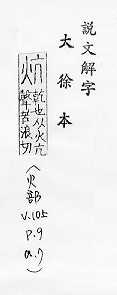 説文解字
大徐本
炕
乾也从火亢
聲苦浪切
(火部
V.10上
P.9
a.7)